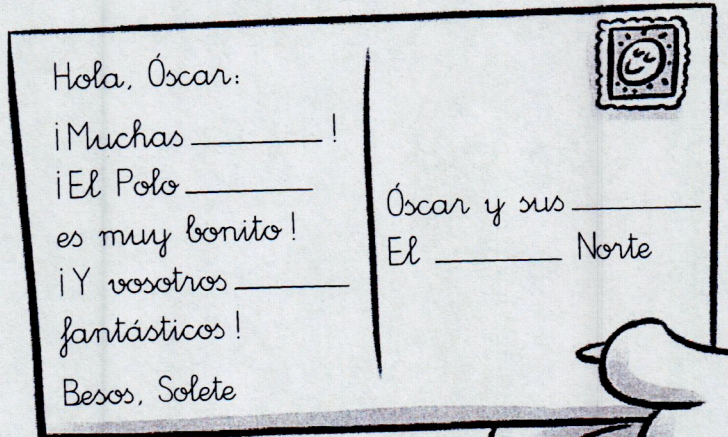 Hola, Óscar:
¡Muchas ________ !
¡El Polo ________
es muy bonito!
¡Y vosotros ________
fantásticos!
Besos, Solete
Óscar y sus ________
El ________ Norte